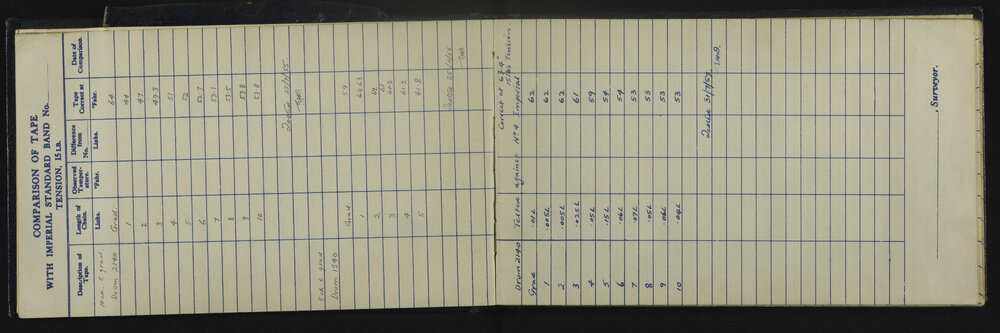 COMPARISON OF TAPE
WITH IMPERIAL STANDARD BAND No.
TENSION, 15 LB.
Description of Tape. Length of Chain. Observed Temperature. Difference from No. Tape Correct at Date of Comparison.
Links. °Fahr. Links. °Fahr.
10 ch & grad
Drum 2140 Grad. 64
1 44
2 47
3 49.3
4 51
5 52
6 52.7
7 53.1
8 53.5
9 53.8
10 53.8
Tested 25/4/55
5 ch & grad
Drum 1540 Grad. 59
1 62.63
2 62
3 61.2
4 61.2
5 61.8
Tested 25/4/55
Correct at 63.4°
15 lbs Tension
Drum 2140 Tested against No 4 Imperial
Grad .01L 62
1 .005L 62
2 .005L 62
3 .025L 61
4 .05L 59
5 .15L 54
6 .06L 54
7 .07L 53
8 .05L 53
9 .06L 53
10 .04L 53
Tested 31/7/57
, Surveyor.